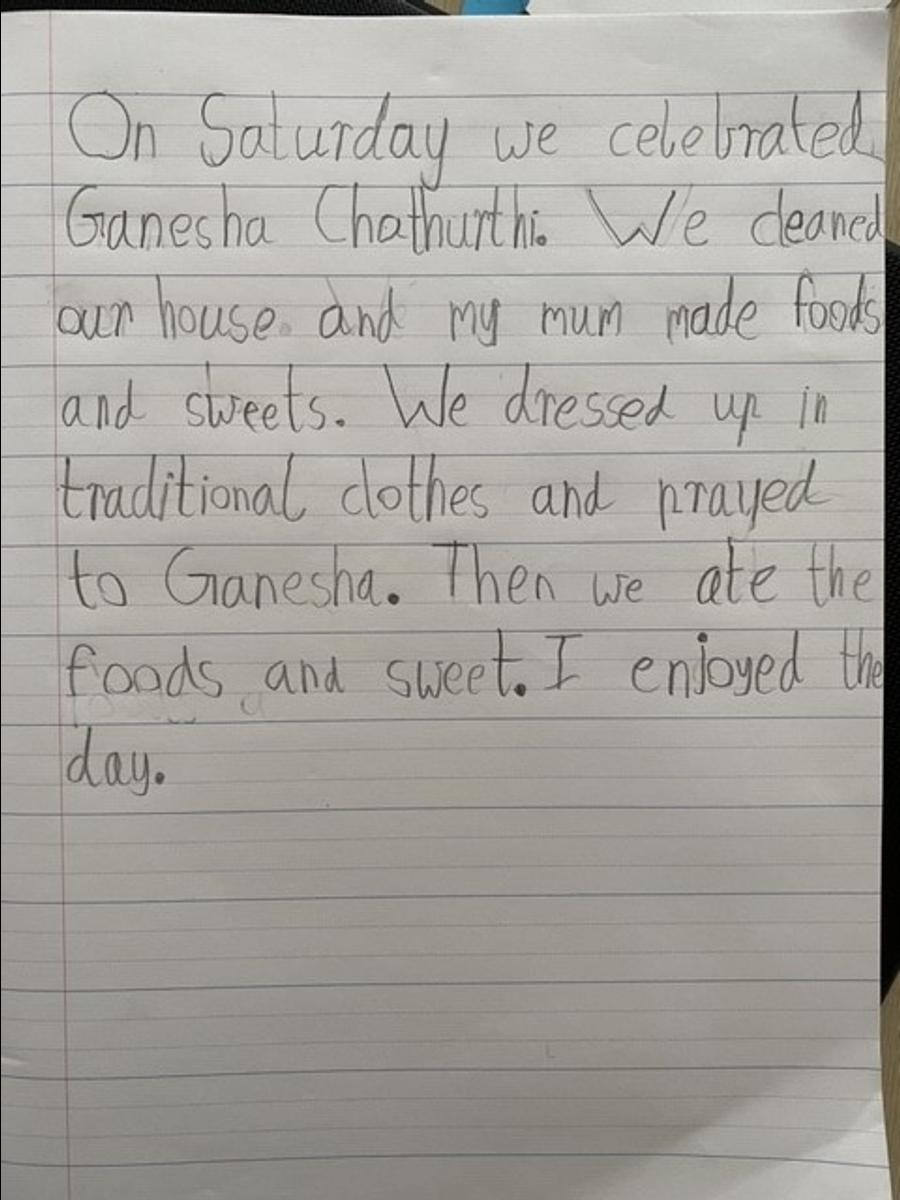 On Saturday we celebrated
Ganesha Chathurthi. We cleaned
our house and my mum made foods
and sweets. We dressed up in
traditional clothes and prayed
to Ganesha. Then we ate the
foods and sweet. I enjoyed the
day.